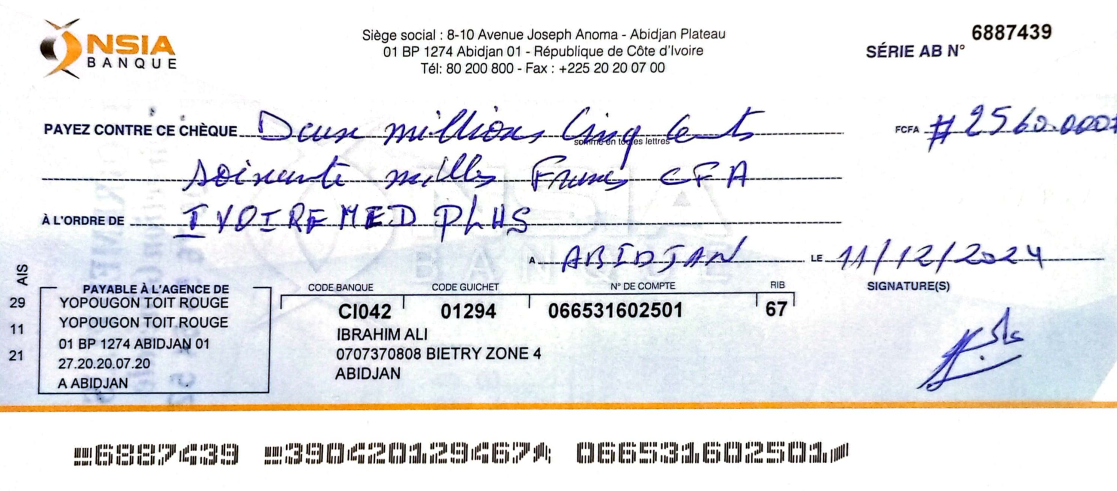 NSIA
BANQUE
Siège social : 8-10 Avenue Joseph Anoma - Abidjan Plateau
01 BP 1274 Abidjan 01 - République de Côte d'Ivoire
Tél: 80 200 800 - Fax : +225 20 20 07 00
SÉRIE AB N° 6887439
PAYEZ CONTRE CE CHÈQUE Deux millions Cinq Cents
somme en toutes lettres
FCFA #2560.000#
soixante milles Francs CFA
À L'ORDRE DE IVOIRE MED PLUS
A ABIDJAN LE 11/12/2024
SIGNATURE(S)
AIS
29
11
21
PAYABLE À L'AGENCE DE
YOPOUGON TOIT ROUGE
YOPOUGON TOIT ROUGE
01 BP 1274 ABIDJAN 01
27.20.20.07.20
A ABIDJAN
CODE BANQUE CODE GUICHET N° DE COMPTE RIB
CI042 01294 066531602501 67
IBRAHIM ALI
0707370808 BIETRY ZONE 4
ABIDJAN
6887439 390420129467 066531602501